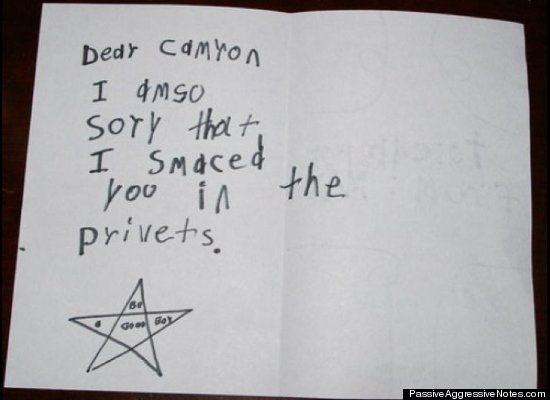 Dear Camron
I amso
sory that
I smaced
you in the
privets.
Be
a Good Boy
PassiveAggressiveNotes.com